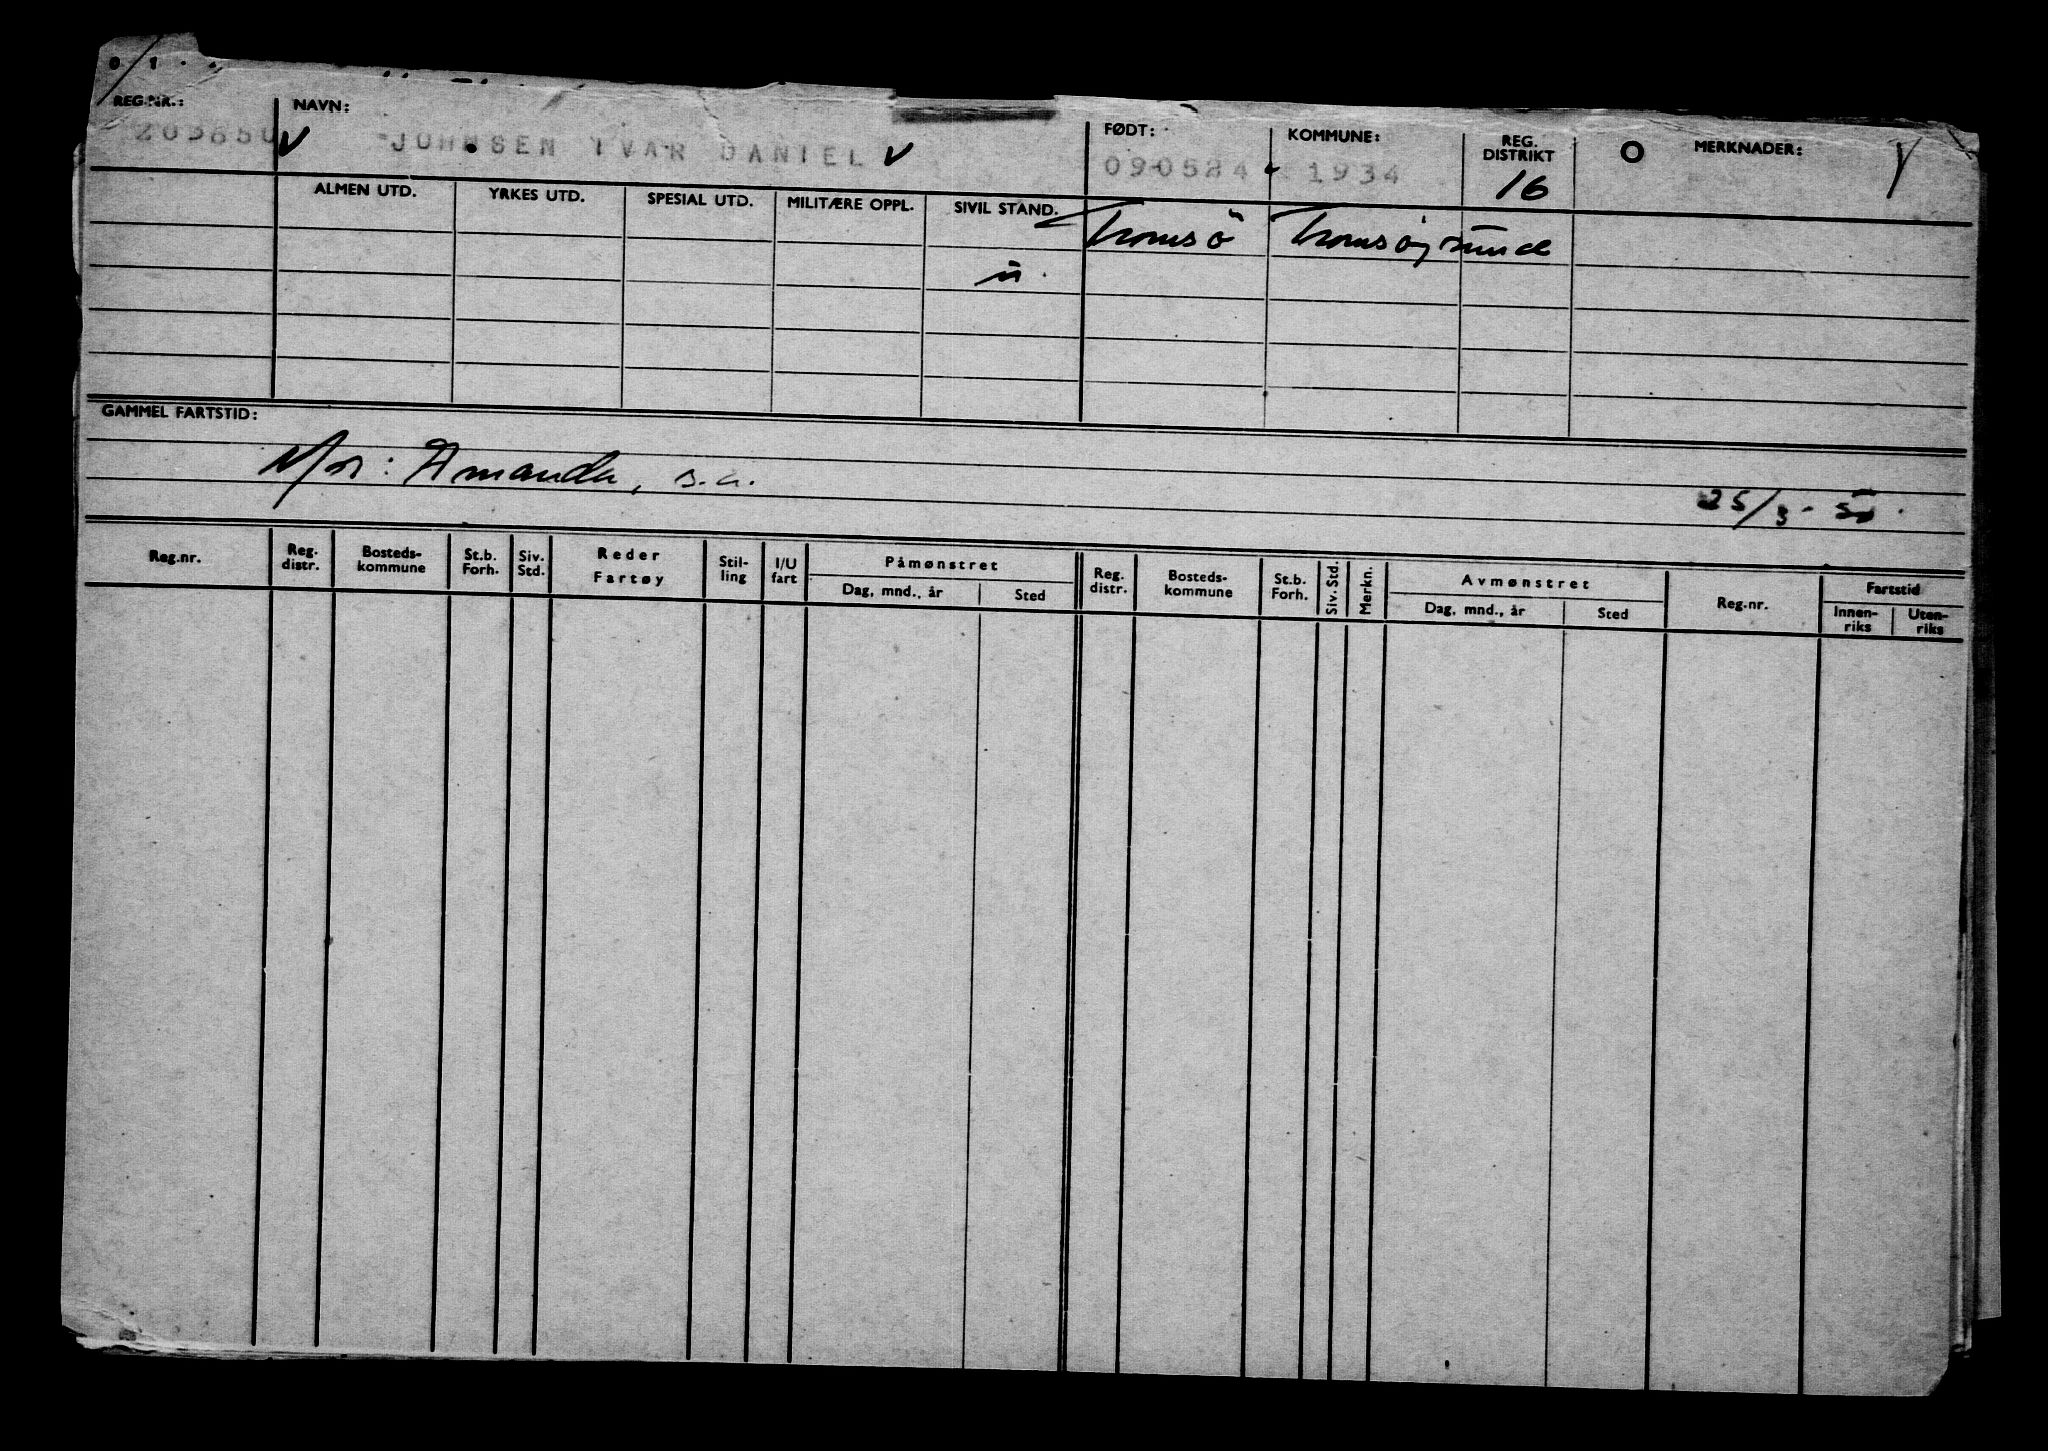 0 1
REG.NR.: NAVN: FØDT: KOMMUNE: REG. DISTRIKT O MERKNADER:
JOHNSEN IVAR DANIEL 090524 1934 16
ALMEN UTD. YRKES UTD. SPESIAL UTD. MILITÆRE OPPL. SIVIL STAND. Tromsö Tromsøysund
u
GAMMEL FARTSTID:
Mor: Amanda, s.a. 25/3-50
Reg.nr. Reg. distr. Bosteds-kommune St.b. Forh. Siv. Std. Reder Fartøy Stil-ling I/U fart Påmønstret Dag, mnd., år Sted Reg. distr. Bosteds-kommune St.b. Forh. Siv. Std. Merkn. Avmønstret Dag, mnd., år Sted Reg.nr. Fartstid Innen-riks Uten-riks